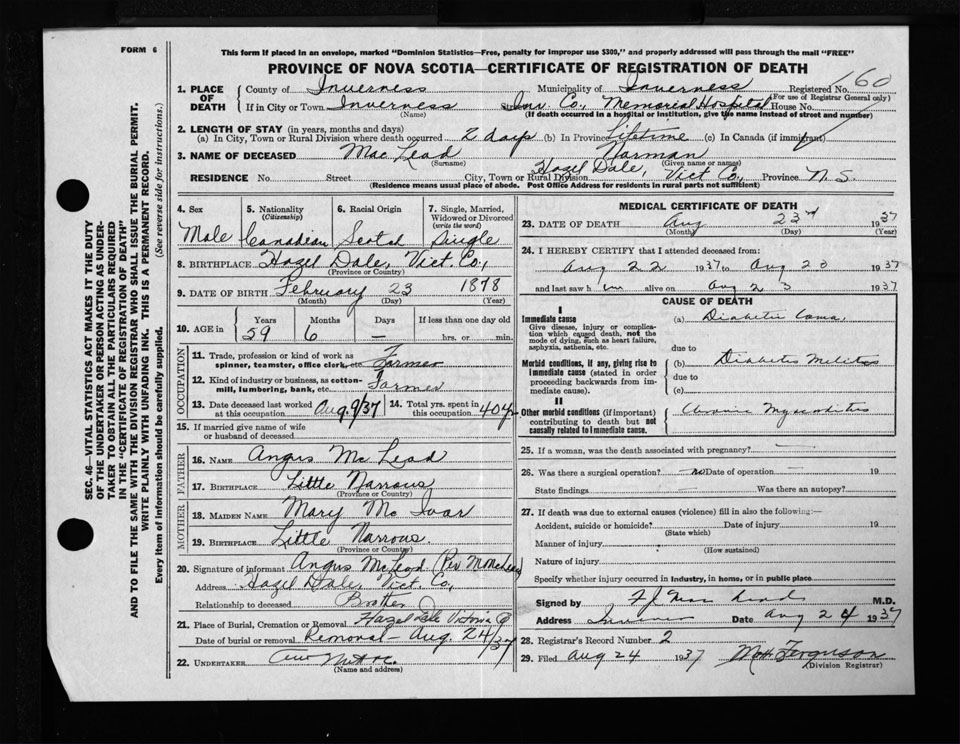 FORM 6
This form if placed in an envelope, marked "Dominion Statistics—Free, penalty for improper use $300," and properly addressed will pass through the mail "FREE"
PROVINCE OF NOVA SCOTIA—CERTIFICATE OF REGISTRATION OF DEATH
160
1. PLACE OF DEATH
County of Inverness Municipality of Inverness Registered No.
(For use of Registrar General only)
If in City or Town Inverness Inv. Co., Memorial Hospital House No.
(Name) (If death occurred in a hospital or institution, give the name instead of street and number)
2. LENGTH OF STAY (in years, months and days)
(a) In City, Town or Rural Division where death occurred 2 days (b) In Province Lifetime (c) In Canada (if immigrant)
3. NAME OF DECEASED Mac Leod Norman
(Surname) (Given name or names)
RESIDENCE No. Street City, Town or Rural Division Hazel Dale, Vict Co., Province N. S.
(Residence means usual place of abode. Post Office Address for residents in rural parts not sufficient)
4. Sex 5. Nationality 6. Racial Origin 7. Single, Married, Widowed or Divorced
(Citizenship) (write the word)
Male Canadian Scotch Single
8. BIRTHPLACE Hazel Dale, Vict. Co.,
(Province or Country)
9. DATE OF BIRTH February 23 1878
(Month) (Day) (Year)
10. AGE in Years Months Days If less than one day old
59 6 — hrs. or min.
OCCUPATION
11. Trade, profession or kind of work as spinner, teamster, office clerk, etc. Farmer
12. Kind of industry or business, as cotton-mill, lumbering, bank, etc. Farmer
13. Date deceased last worked at this occupation Aug. 9/37 14. Total yrs. spent in this occupation 40 y
15. If married give name of wife or husband of deceased
FATHER
16. NAME Angus Mc Leod
17. BIRTHPLACE Little Narrows
(Province or Country)
MOTHER
18. MAIDEN NAME Mary Mc Ivar
19. BIRTHPLACE Little Narrows.
(Province or Country)
20. Signature of informant Angus McLeod (Per
Address Hazel Dale, Vict. Co,
Relationship to deceased Brother
21. Place of Burial, Cremation or Removal Hazel Dale Victoria Co
Date of burial or removal Removal — Aug. 24/37
22. UNDERTAKER
(Name and address)
MEDICAL CERTIFICATE OF DEATH
23. DATE OF DEATH Aug 23rd 1937
(Month) (Day) (Year)
24. I HEREBY CERTIFY that I attended deceased from:
Aug 22 1937 to Aug 23 1937
and last saw him alive on Aug 23 1937
CAUSE OF DEATH
I
Immediate cause (a) Diabetic Coma
Give disease, injury or complication which caused death, not the mode of dying, such as heart failure, asphyxia, asthenia, etc.
due to
Morbid conditions, if any, giving rise to immediate cause (stated in order proceeding backwards from immediate cause).
(b) Diabetes Melitus
due to
(c)
II
Other morbid conditions (if important) contributing to death but not causally related to immediate cause.
Chronic Myocarditis
25. If a woman, was the death associated with pregnancy? —
26. Was there a surgical operation? no Date of operation — 19
State findings Was there an autopsy?
27. If death was due to external causes (violence) fill in also the following:—
Accident, suicide or homicide? Date of injury 19
(State which)
Manner of injury
(How sustained)
Nature of injury
Specify whether injury occurred in industry, in home, or in public place
Signed by M.D.
Address Inverness Date Aug 24 1937
28. Registrar's Record Number 2
29. Filed Aug 24 1937 Ferguson
(Division Registrar)
SEC. 46—VITAL STATISTICS ACT MAKES IT THE DUTY
OF THE UNDERTAKER OR PERSON ACTING AS UNDER-
TAKER TO OBTAIN ALL THE PARTICULARS REQUIRED
IN THE "CERTIFICATE OF REGISTRATION OF DEATH"
AND TO FILE THE SAME WITH THE DIVISION REGISTRAR WHO SHALL ISSUE THE BURIAL PERMIT.
WRITE PLAINLY WITH UNFADING INK. THIS IS A PERMANENT RECORD.
Every item of information should be carefully supplied. (See reverse side for instructions.)